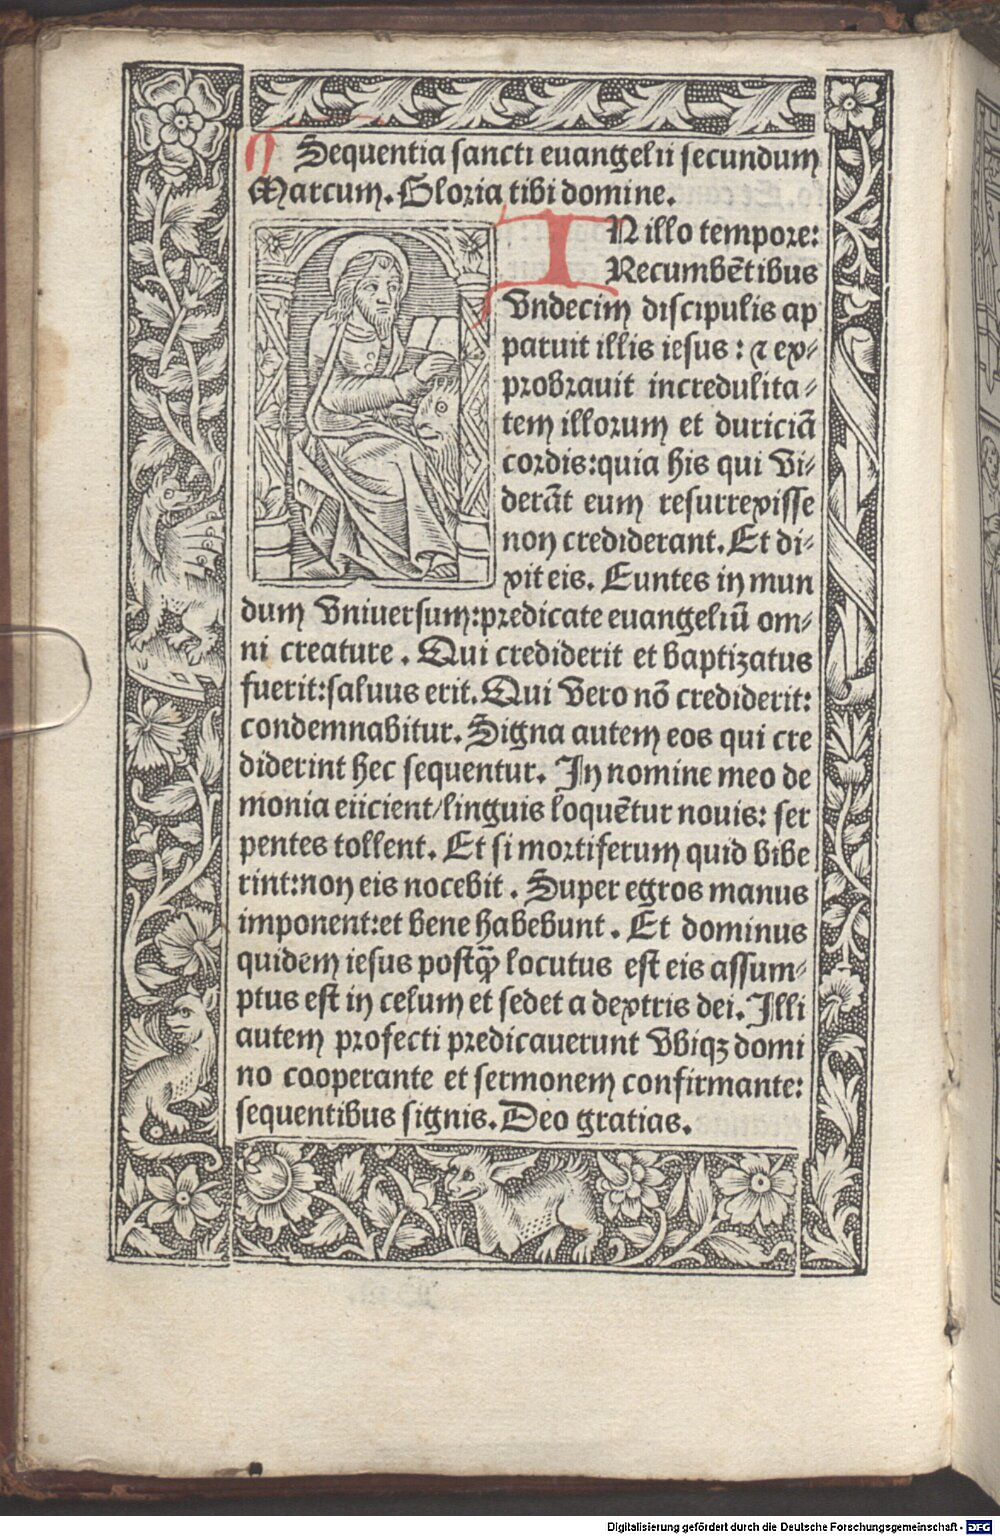 Sequentia sancti euangelii secundum
Marcum. Gloria tibi domine.
IN illo tempore:
Recumbētibus
vndecim discipulis ap
paruit illis iesus: ⁊ ex⸗
probrauit incredulita⸗
tem illorum et duriciā
cordis:quia his qui vi⸗
derāt eum resurrexisse
non crediderant. Et di⸗
xit eis. Euntes in mun
dum vniuersum:predicate euangeliū om⸗
ni creature. Qui crediderit et baptizatus
fuerit:saluus erit. Qui vero nō crediderit:
condemnabitur. Signa autem eos qui cre
diderint hec sequentur. In nomine meo de
monia eiicient/linguis loquētur nouis: ser
pentes tollent. Et si mortiferum quid bibe
rint:non eis nocebit. Super egros manus
imponent:et bene habebunt. Et dominus
quidem iesus postq̄ locutus est eis assum⸗
ptus est in celum et sedet a dextris dei. Illi
autem profecti predicauerunt vbiqꝫ domi
no cooperante et sermonem confirmante:
sequentibus signis. Deo gratias.
Digitalisierung gefördert durch die Deutsche Forschungsgemeinschaft - DFG